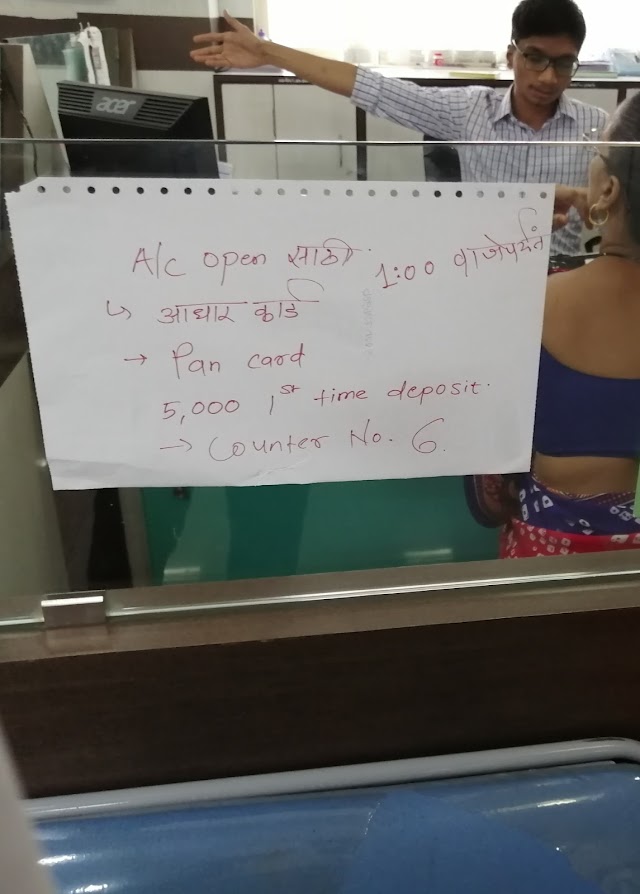 acer
A/c open साठी.
1:00 वाजेपर्यंत
↳ आधार कार्ड
→ Pan card
5,000 1st time deposit.
→ Counter No. 6.